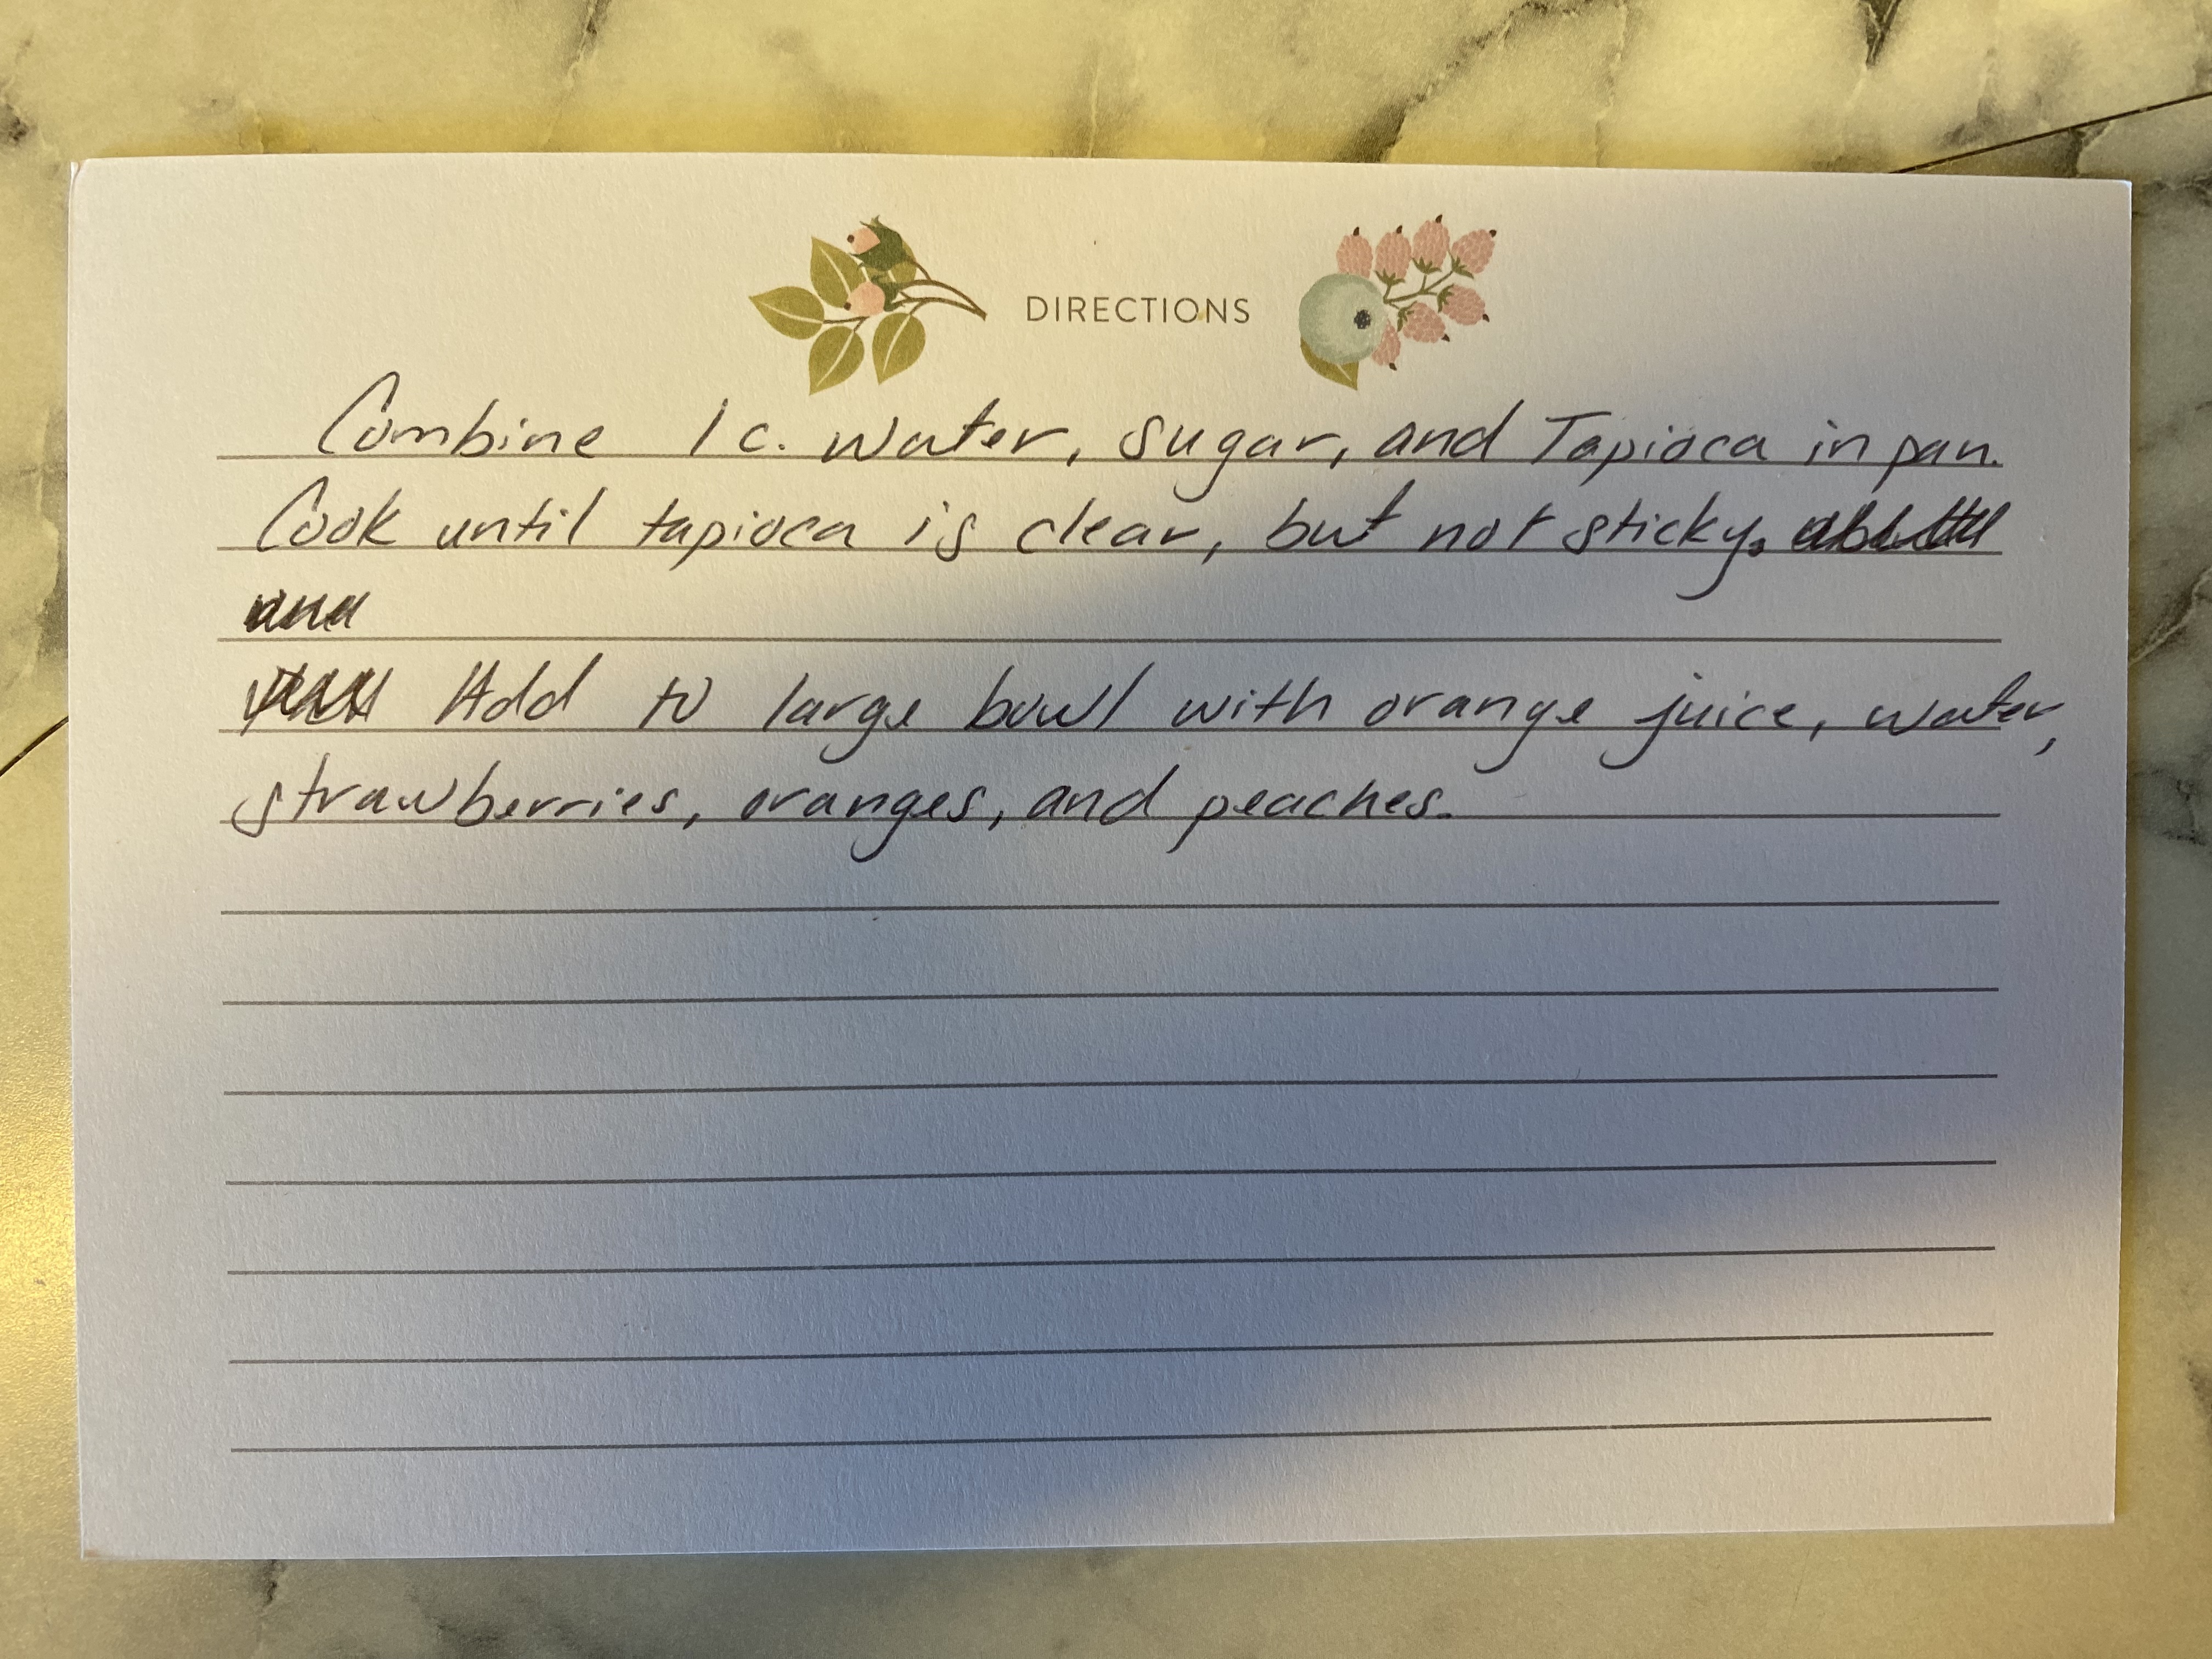 DIRECTIONS
Combine 1 c. water, sugar, and Tapioca in pan.
Cook until tapioca is clear, but not sticky.
Add to large bowl with orange juice, water,
strawberries, oranges, and peaches.